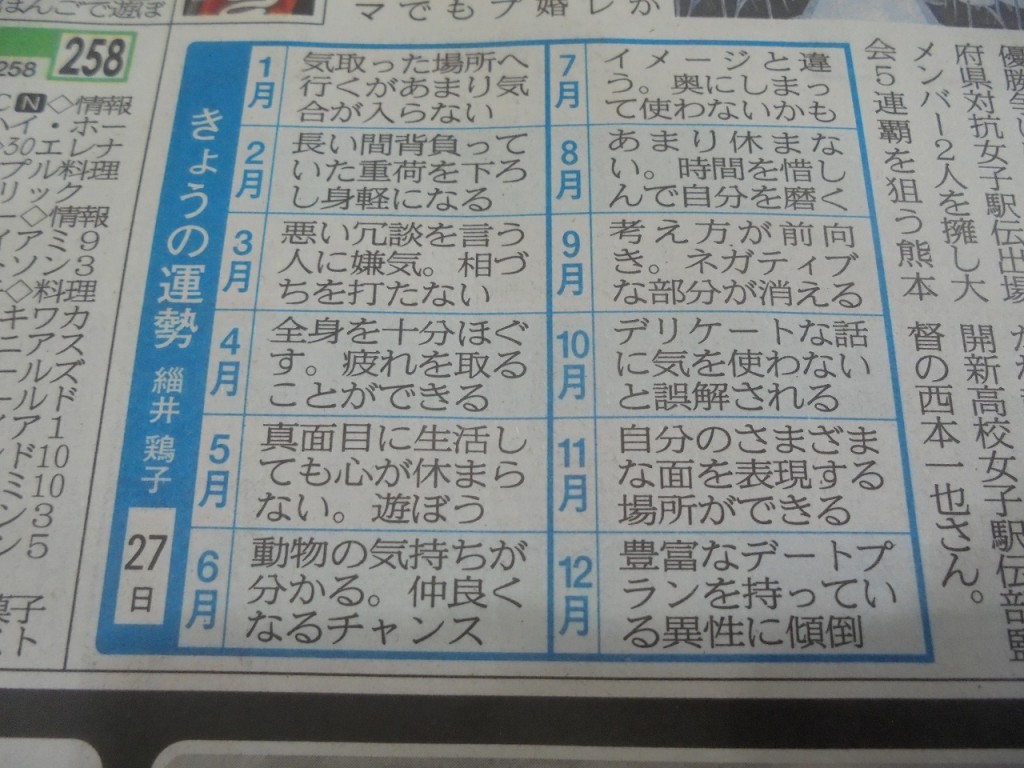 きょうの運勢
緇井 鶏子
27日
1月
気取った場所へ
行くがあまり気
合が入らない
2月
長い間背負って
いた重荷を下ろ
し身軽になる
3月
悪い冗談を言う
人に嫌気。相づ
ちを打たない
4月
全身を十分ほぐ
す。疲れを取る
ことができる
5月
真面目に生活し
ても心が休まら
ない。遊ぼう
6月
動物の気持ちが
分かる。仲良く
なるチャンス
7月
イメージと違
う。奥にしまっ
て使わないかも
8月
あまり休まな
い。時間を惜し
んで自分を磨く
9月
考え方が前向
き。ネガティブ
な部分が消える
10月
デリケートな話
に気を使わない
と誤解される
11月
自分のさまざま
な面を表現する
場所ができる
12月
豊富なデートプ
ランを持ってい
る異性に傾倒
府県対抗女子駅伝出場
メンバー2人を擁し大
会5連覇を狙う熊本
開新高校女子駅伝部監
督の西本一也さん。
258
258